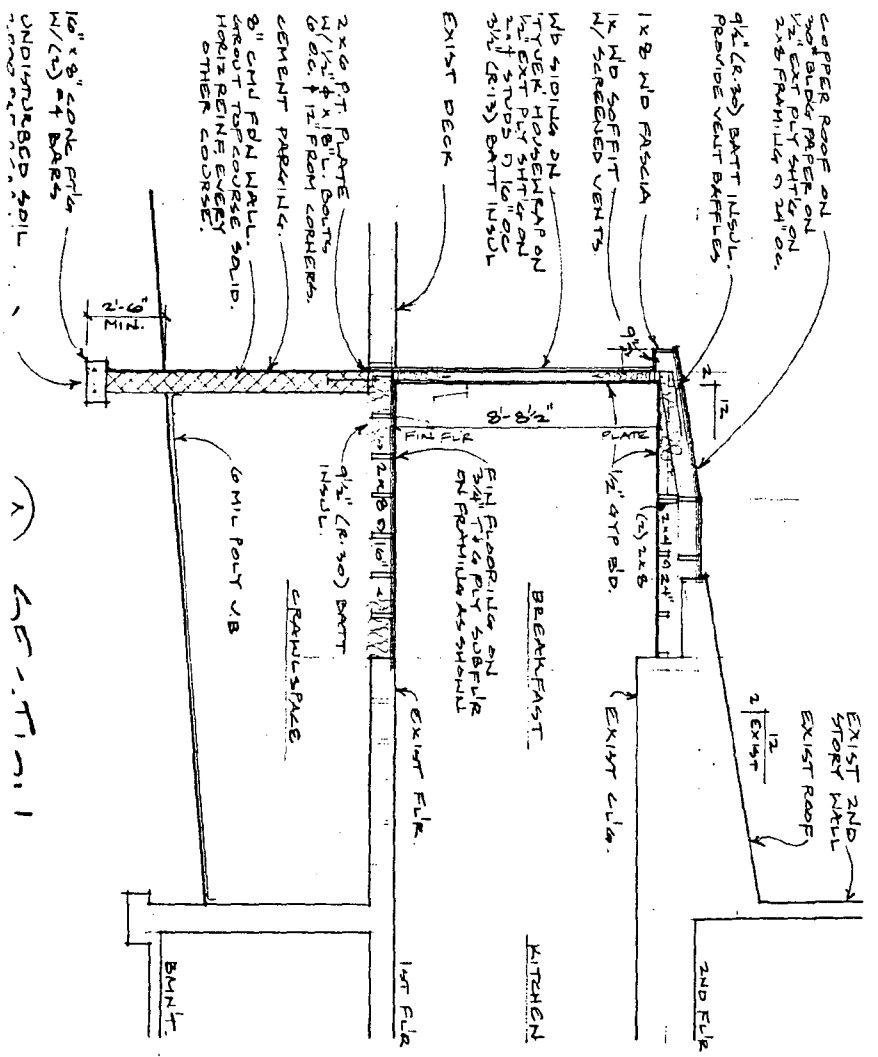 COPPER ROOF ON
30# BLDG PAPER ON
1/2" EXT PLY SHT'G ON
2x8 FRAMING @ 24" OC.
9 1/2" (R-30) BATT INSUL.
PROVIDE VENT BAFFLES
1x8 W'D FASCIA
1x W'D SOFFIT
W/ SCREENED VENTS
W'D SIDING ON
'TYVEK HOUSEWRAP ON
1/2" EXT PLY SHT'G ON
2x4 STUDS @ 16" OC
3 1/2" (R-13) BATT INSUL
EXIST DECK
2x6 P.T. PLATE
W/ 1/2" ϕ x 18" L. BOLTS
6' O.C. & 12" FROM CORNERS.
CEMENT PARGING.
8" CMU FDN WALL.
GROUT TOP COURSE SOLID.
HORIZ REINF EVERY
OTHER COURSE.
16" x 8" CONC FT'G
W/ (2) #4 BARS
UNDISTURBED SOIL
2'-6"
MIN.
9 1/2"
2
12
8'-8 1/2"
FIN FLR
PLATE
1/2" GYP BD.
(2) 2x8
2x4 @ 24"
2x8 @ 16"
9 1/2" (R-30) BATT
INSUL.
FIN FLOORING ON
3/4" T&G PLY SUBFL'R
ON FRAMING AS SHOWN
6 MIL POLY V.B
CRAWLSPACE
BREAKFAST
EXIST FL'R.
EXIST CL'G.
12
2
EXIST
EXIST ROOF
EXIST 2ND
STORY WALL
2ND FL'R
KITCHEN
1ST FL'R
BMN'T.